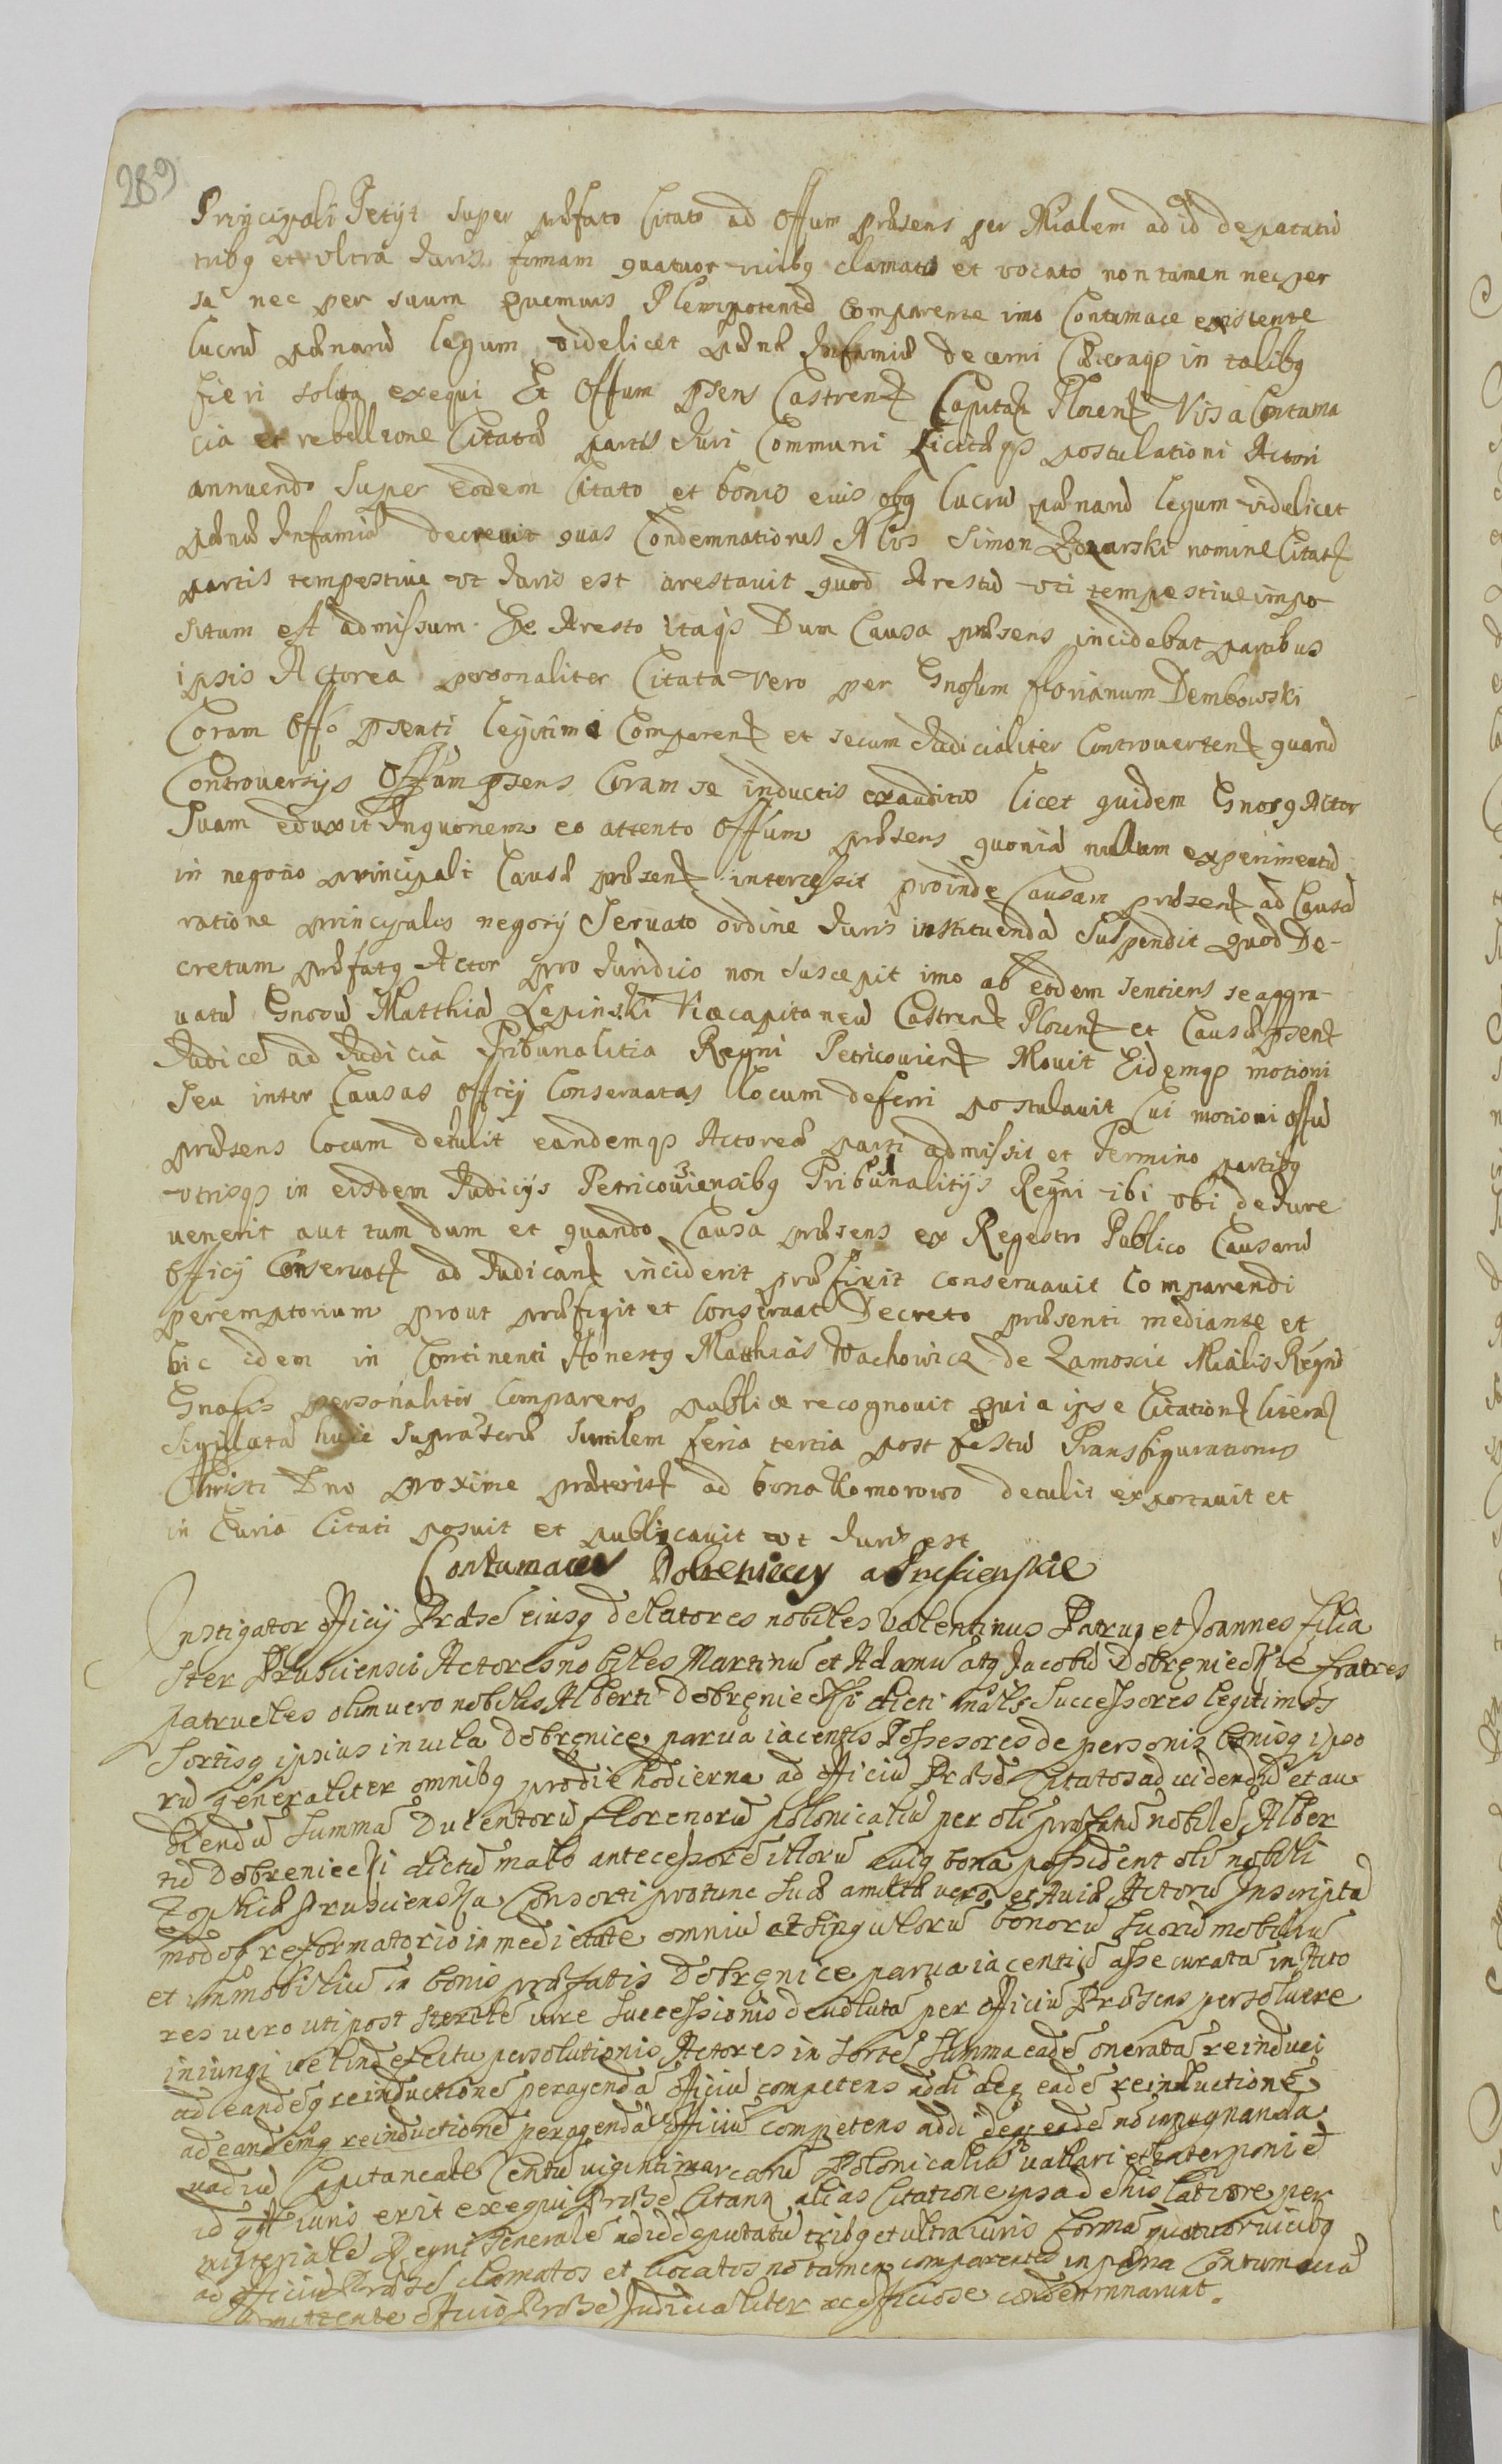 289
Principali Petijt super præfato Citato ad Offum præsens per Mialem ad id deputatū
tribq et vltra Juris formam quatuor vicibq clamato et vocato non tamen nec per
se nec per suum quemvis Plenipotentē Comparente imo Contumace existente
lucrū pænarū legum videlicet pænæ Infamiæ decerni Cæteraqȝ in talibq
fieri solita exequi Et Offum psens Castrenȝ Capitaȝ Plocenȝ Visa Contuma
cia et rebellione Citatæ partis Juri Communi Licitæqȝ postulationi Actori
annuendo super eodem Citato et bonis eius obq lucrū pænarū legum videlicet
pænæ Infamiæ decrevit quas Condemnationes Nlis Simon nomine Citatȝ
partis tempestive vt Juris est arestavit quod Arestū vti tempestive impo
situm est admissum. Ex Aresto itaqȝ Dum Causa præsens incidebat partibus
ipsis Actorea personaliter Citata vero per Gnosum florianum Dembowski
Coram Offo psenti legitime Comparenȝ et secum Judicialiter Controvertenȝ quarū
Controversijs Offum psens Coram se inductis exauditis licet quidem Gnosq Actor
Suam eduxit Inquonem eo attento Offum præsens quoniā nullum experimentū
in negotio principali Causæ præsenȝ intercessit proinde Causam præsenȝ ad Causā
ratione principalis negotij Servato ordine Juris instituendā Suspendit quod De-
cretum præfatq Actor pro Juridico non suscepit imo ab eodem sentiens se aggra-
vatū Gnosū Matthiā Lepinski Vicecapitaneū Castrenȝ Plocenȝ et Causæ psenȝ
Judicē ad Judicia Tribunalitia Regni Petricovienȝ Movit Eidemqȝ motioni
Seu inter Causas Officij Conservatas Locum deferri postulavit Cui motioni offū
præsens locum detulit eandemqȝ Actoreæ parti admissit et Termino partibq
vtrisqȝ in eisdem Judicijs Petricoviensibq Tribunalitijs Regni ibi vbi de Jure
venerit aut tum dum et quando Causa præsens ex Regestro Publico Causarū
Officij Conservatȝ ad Judicanȝ inciderit præfixit conservavit Comparendi
peremptorium prout præfigit et Conservat Decreto præsenti mediante et
hic idem in Continenti Honestq Matthias Wachowicz de Zamoscie Mialis Regni
Gnalis personaliter Comparens publice recognovit quia ipse Citationȝ literaȝ
sigillatā huic supra scriæ similem feria tertia post festū Transfigurationis
Christi Dno proxime præteritȝ ad bona Komorowo detulit exportavit et
in Curia Citati posuit et publicavit vt Juris est
Contumaces Dobreniccy a Prusienskie
Instigator officij Præse eiusq delatores nobiles Valentinus Patruq et Joannes filia
ster Prusciensci Actores nobiles Martinū et Adamū atq Jacobū Dobręnieckie fratres
patrueles olim vero nobilis Alberti Dobręniecki dicti mals Successores legitimos
sortisq ipsius in villa Dobrenice parva iacentis Possesores de personis bonisq ipso
rū generaliter omnibq pro die hodierna ad officiū Præse Citatos ad videndū et au
diendū Summā Ducentorū florenorū polonicaliū per oli præfatū nobilē Alber
tū Dobreniecki dictū mals antecessorē illorū cuiq bona possident oli nobili
Zophiæ Prusciensȝka Consorti protunc suæ amitæ vero et Aviæ Actorū Inscriptā
modoq reformatorio in medietate omniū et singulorū bonorū suorū mobiliū
et immobiliū in bonis præfatis Dobręnice parva iacentiū assecuratā in Acto
res vero uti post sterile iure successionis devolutā per officiū Præsens persolvere
iniungi vel in defectu persolutionis Actores in sortē summa eadē oneratā reinduci
ad eandēq reinductionē peragendā officiū competens addi deq eadē reinductionē
ad eandēmq reinductionē peragendā officiū competens addi deq eadē nō inpugnanda
vadiū Capitaneale Centū viginti marcarū Polonicaliū vallari et interponi et
id qd iuris erit exequi Præse Citann alias Citatione ipsa de his latiore per
misteriale Regni Generale ad id deputatū tribq et ultra iuris formā quatuor vicibq
ad officiū Præse clamatos et vocatos nō tamen comparentes in pæna Contumaciæ
mittente officio Præse Judicialiter ac officiose condemnarunt.